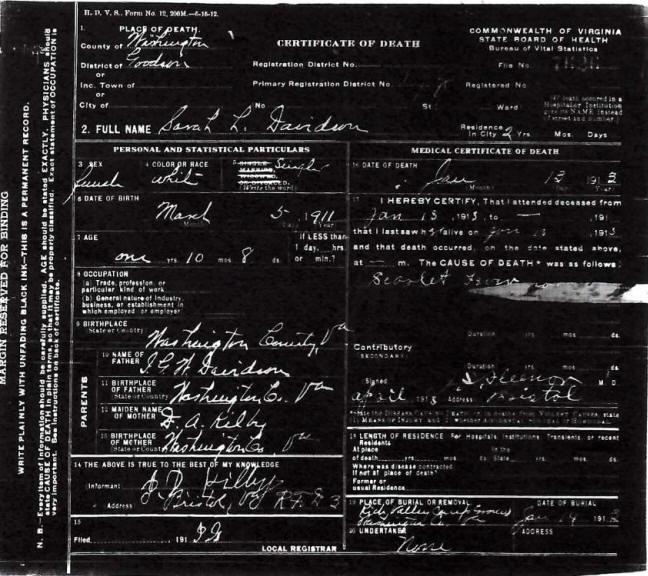 H. D. V. S. Form No. 12, 200M.—6-18-12.
COMMONWEALTH OF VIRGINIA
STATE BOARD OF HEALTH
Bureau of Vital Statistics
CERTIFICATE OF DEATH
1. PLACE OF DEATH.
County of Washington
District of Goodson
or
Inc. Town of
or
City of No St. Ward
Registration District No.
Primary Registration District No.
File No.
Registered No.
2. FULL NAME Sarah L. Davidson
Residence In City 2 Yrs Mos. Days
PERSONAL AND STATISTICAL PARTICULARS
3 SEX
4 COLOR OR RACE White
5 SINGLE MARRIED WIDOWED OR DIVORCED (Write the word) Single
6 DATE OF BIRTH
March 5 1911
7 AGE
one yrs 10 mos 8 ds
If LESS than 1 day, hrs or min.?
8 OCCUPATION
(a) Trade, profession, or particular kind of work
(b) General nature of industry, business, or establishment in which employed or employer
9 BIRTHPLACE
State or Country Washington County, Va
PARENTS
10 NAME OF FATHER Davidson
11 BIRTHPLACE OF FATHER
(State or Country) Washington Co. Va
12 MAIDEN NAME OF MOTHER D. A. Kilby
13 BIRTHPLACE OF MOTHER
(State or Country) Washington Co Va
14 THE ABOVE IS TRUE TO THE BEST OF MY KNOWLEDGE
Informant
Address Bristol, Va R.F.D 3
15
Filed 191
LOCAL REGISTRAR
MEDICAL CERTIFICATE OF DEATH
16 DATE OF DEATH
Jan 13 1913
(Month) Day Year
17 I HEREBY CERTIFY, That I attended deceased from
Jan 13, 1913, to — , 191
that I last saw h alive on Jan 13 1913
and that death occurred, on the date stated above,
at — m. The CAUSE OF DEATH * was as follows:
Scarlet
Duration yrs. mos ds.
Contributory
(SECONDARY)
Duration yrs. mos. ds.
Signed M. D.
April 1913 Address Bristol
18 LENGTH OF RESIDENCE For Hospitals, Institutions, Transients, or recent Residents
At place of death yrs. mos. ds. In the State yrs. mos. ds.
Where was disease contracted
If not at place of death?
Former or
usual Residence
19 PLACE OF BURIAL OR REMOVAL DATE OF BURIAL
Valley Camp Ground Jan 14 191
20 UNDERTAKER ADDRESS
None
MARGIN RESERVED FOR BINDING
WRITE PLAINLY WITH UNFADING BLACK INK—THIS IS A PERMANENT RECORD.
N. B.—Every item of information should be carefully supplied. AGE should be stated EXACTLY. PHYSICIANS should
state CAUSE OF DEATH in plain terms, so that it may be properly classified. Exact statement of OCCUPATION is
very important. See instructions on back of certificate.